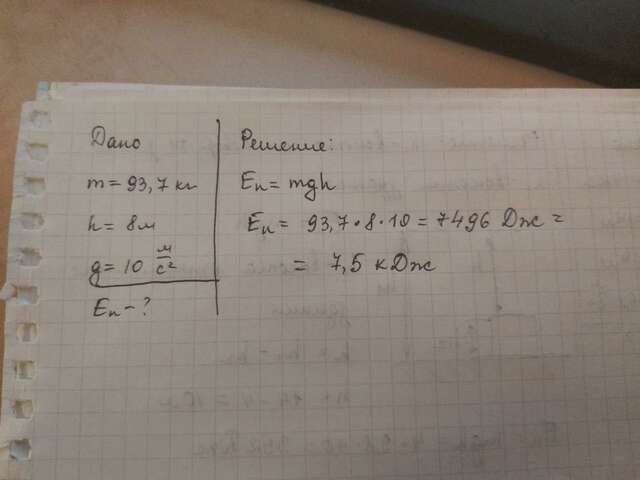 Дано
m = 93,7 кг
h = 8 м
g = 10 м/с²
Eп - ?
Решение:
Eп = mgh
Eп = 93,7 • 8 • 10 = 7496 Дж =
= 7,5 кДж